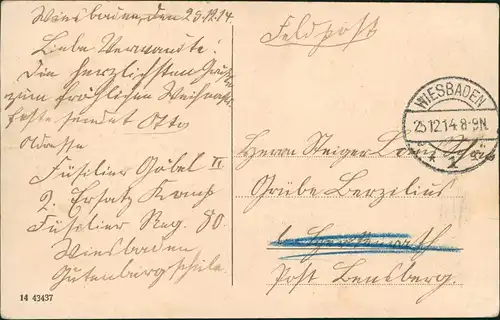 Wiesbaden, den 25.12.14.
Liebe Verwandte!
Die herzlichsten Grüße
zum fröhlichen Weihnachts
feste sendet Otto
Adresse
Füsilier Göbel II
2. Ersatz Komp
Füsilier Reg. 80.
Wiesbaden
Gutenbergschule.
14 43437
Feldpost
WIESBADEN
25.12.14.8-9N.
1
Herrn Steiger
Grube Berzelius
Post Bensberg.